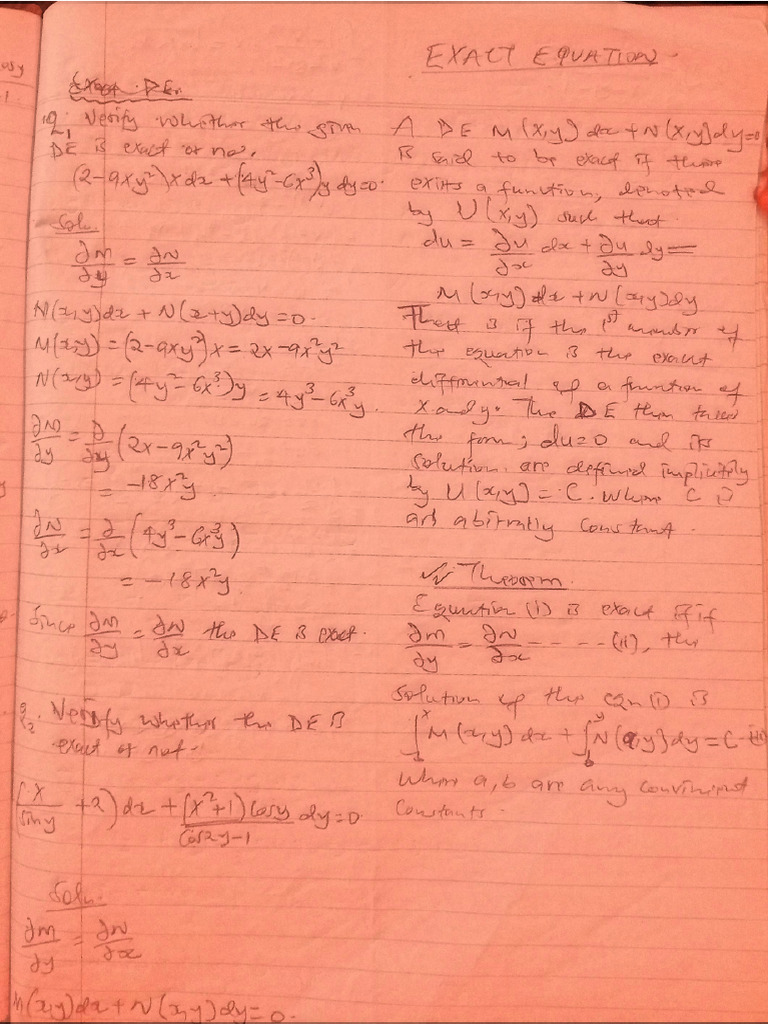 EXACT EQUATION
Exact DEs
Q1. Verify whether the given
DE is exact or not.
(2-9xy²)xdx + (4y²-6x³)y dy=0.
Soln.
∂M/∂y = ∂N/∂x
M(x,y)dx + N(x+y)dy=0.
M(x,y) = (2-9xy²)x = 2x-9x²y²
N(x,y) = (4y²-6x³)y = 4y³-6x³y.
∂M/∂y = ∂/∂y (2x-9x²y²)
= -18x²y.
∂N/∂x = ∂/∂x (4y³-6x³y)
= -18x²y.
Since ∂M/∂y = ∂N/∂x the DE is exact.
Q2. Verify whether the DE is
exact or not.
(x/siny + 2)dx + (x²+1)cosy/cos2y-1 dy=0
Soln.
∂M/∂y = ∂N/∂x
M(x,y)dx + N(x,y)dy=0.
A DE M(x,y)dx + N(x,y)dy=0
is said to be exact if there
exits a function, denoted
by U(x,y) such that
du = ∂u/∂x dx + ∂u/∂y dy =
M(x,y)dx + N(x,y)dy
is if the 1st member of
the equation is the exact
differential of a function of
x and y. The DE then takes
the form; du=0 and its
solution are defined implicitly
by U(x,y) = C. Where C is
constant.
Theorem.
Equation (i) is exact iff
∂m/∂y = ∂N/∂x ------ (ii), the
solution of the eqn (i) is
∫ₐˣ M(x,y)dx + ∫ᵇʸ N(a,y)dy = C -(iii)
where a, b are any
constants.